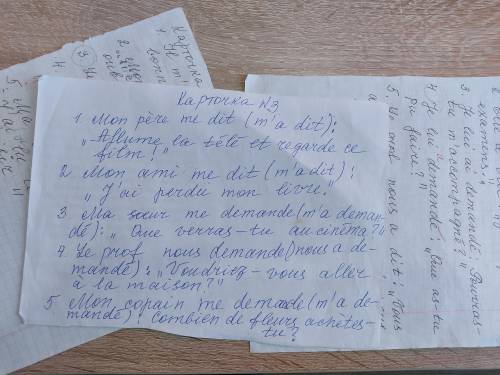 Карточка N3
1 Mon père me dit (m'a dit):
„Allume la télé et regarde ce
film!"
2 Mon ami me dit (m'a dit):
„J'ai perdu mon livre."
3 Ma sœur me demande (m'a deman-
dé): „Que verras-tu au cinéma?"
4 Le prof nous demande (nous a de-
mandé): „Voudriez-vous aller
à la maison?"
5 Mon copain me demande (m'a de-
mandé): Combien de fleurs achètes-
tu?
examens."
3. Je lui ai demandé: Pourras-
tu m'accompagner?"
4 Je lui demandé: „Que as-tu
pu faire?
5 Un ami nous a dit: „Vous
Карточка
1 Je m'
3